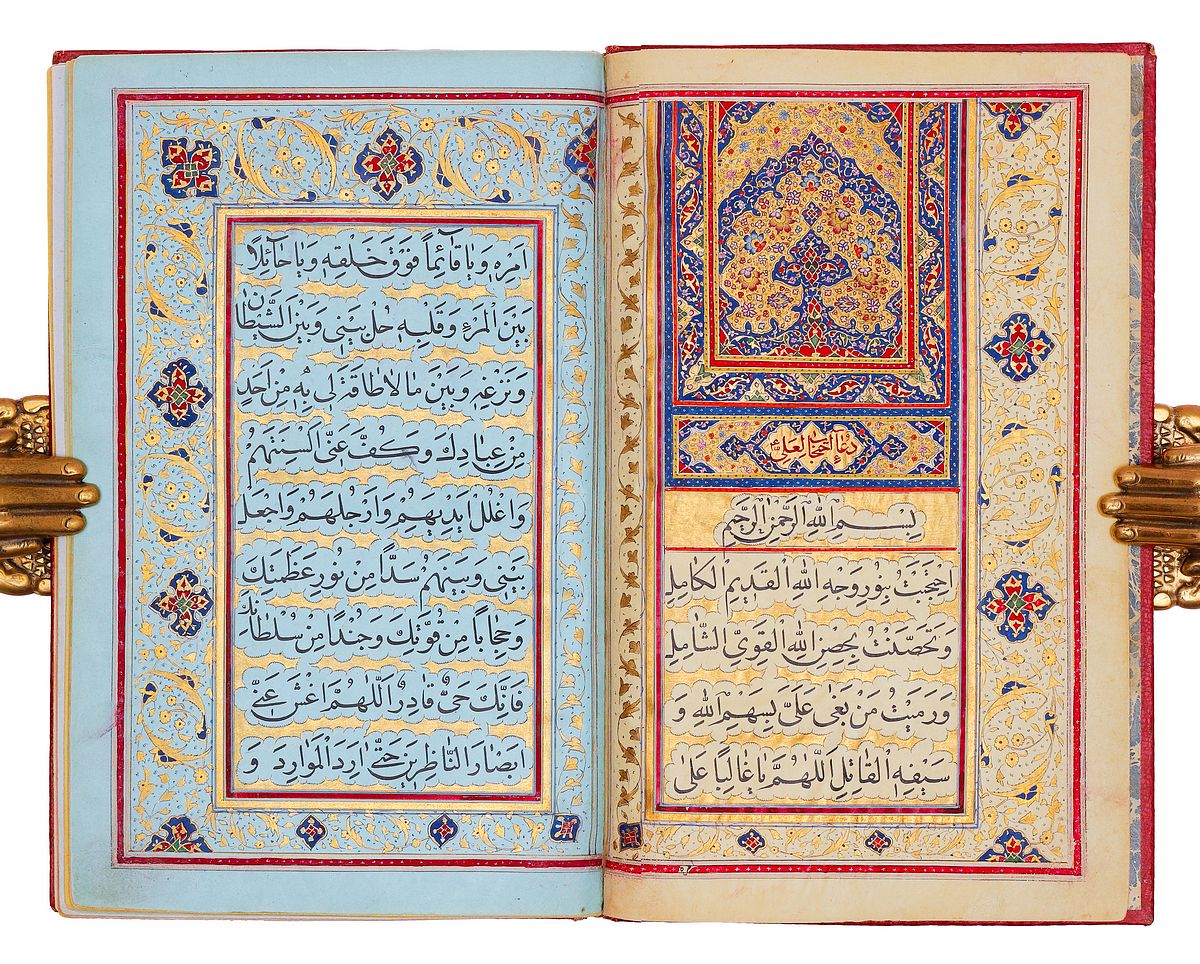 دعاء احتجاب لعلی
بسم الله الرحمن الرحیم
احتجبت بنور وجه الله القدیم الکامل
وتحصّنت بحصن الله القویّ الشّامل
ورمیت من بغی علیّ بسهم الله و
سیفه القاتل اللّهمّ یا غالباً علی
امره ویا قائماً فوق خلقه ویا حائلاً
بین المرء وقلبه حل بینی وبین الشّیطان
ونزغه وبین ما لا طاقة لی به من احد
من عبادك وکفّ عنّی السنتهم
واغلل ایدیهم وارجلهم واجعل
بینی وبینهم سدّاً من نور عظمتك
وحجاباً من قوّتك وجنداً من سلطانك
فانّك حیّ قادر اللّهمّ اغش عنّی
ابصار النّاظرین حتّی ارد الموارد و